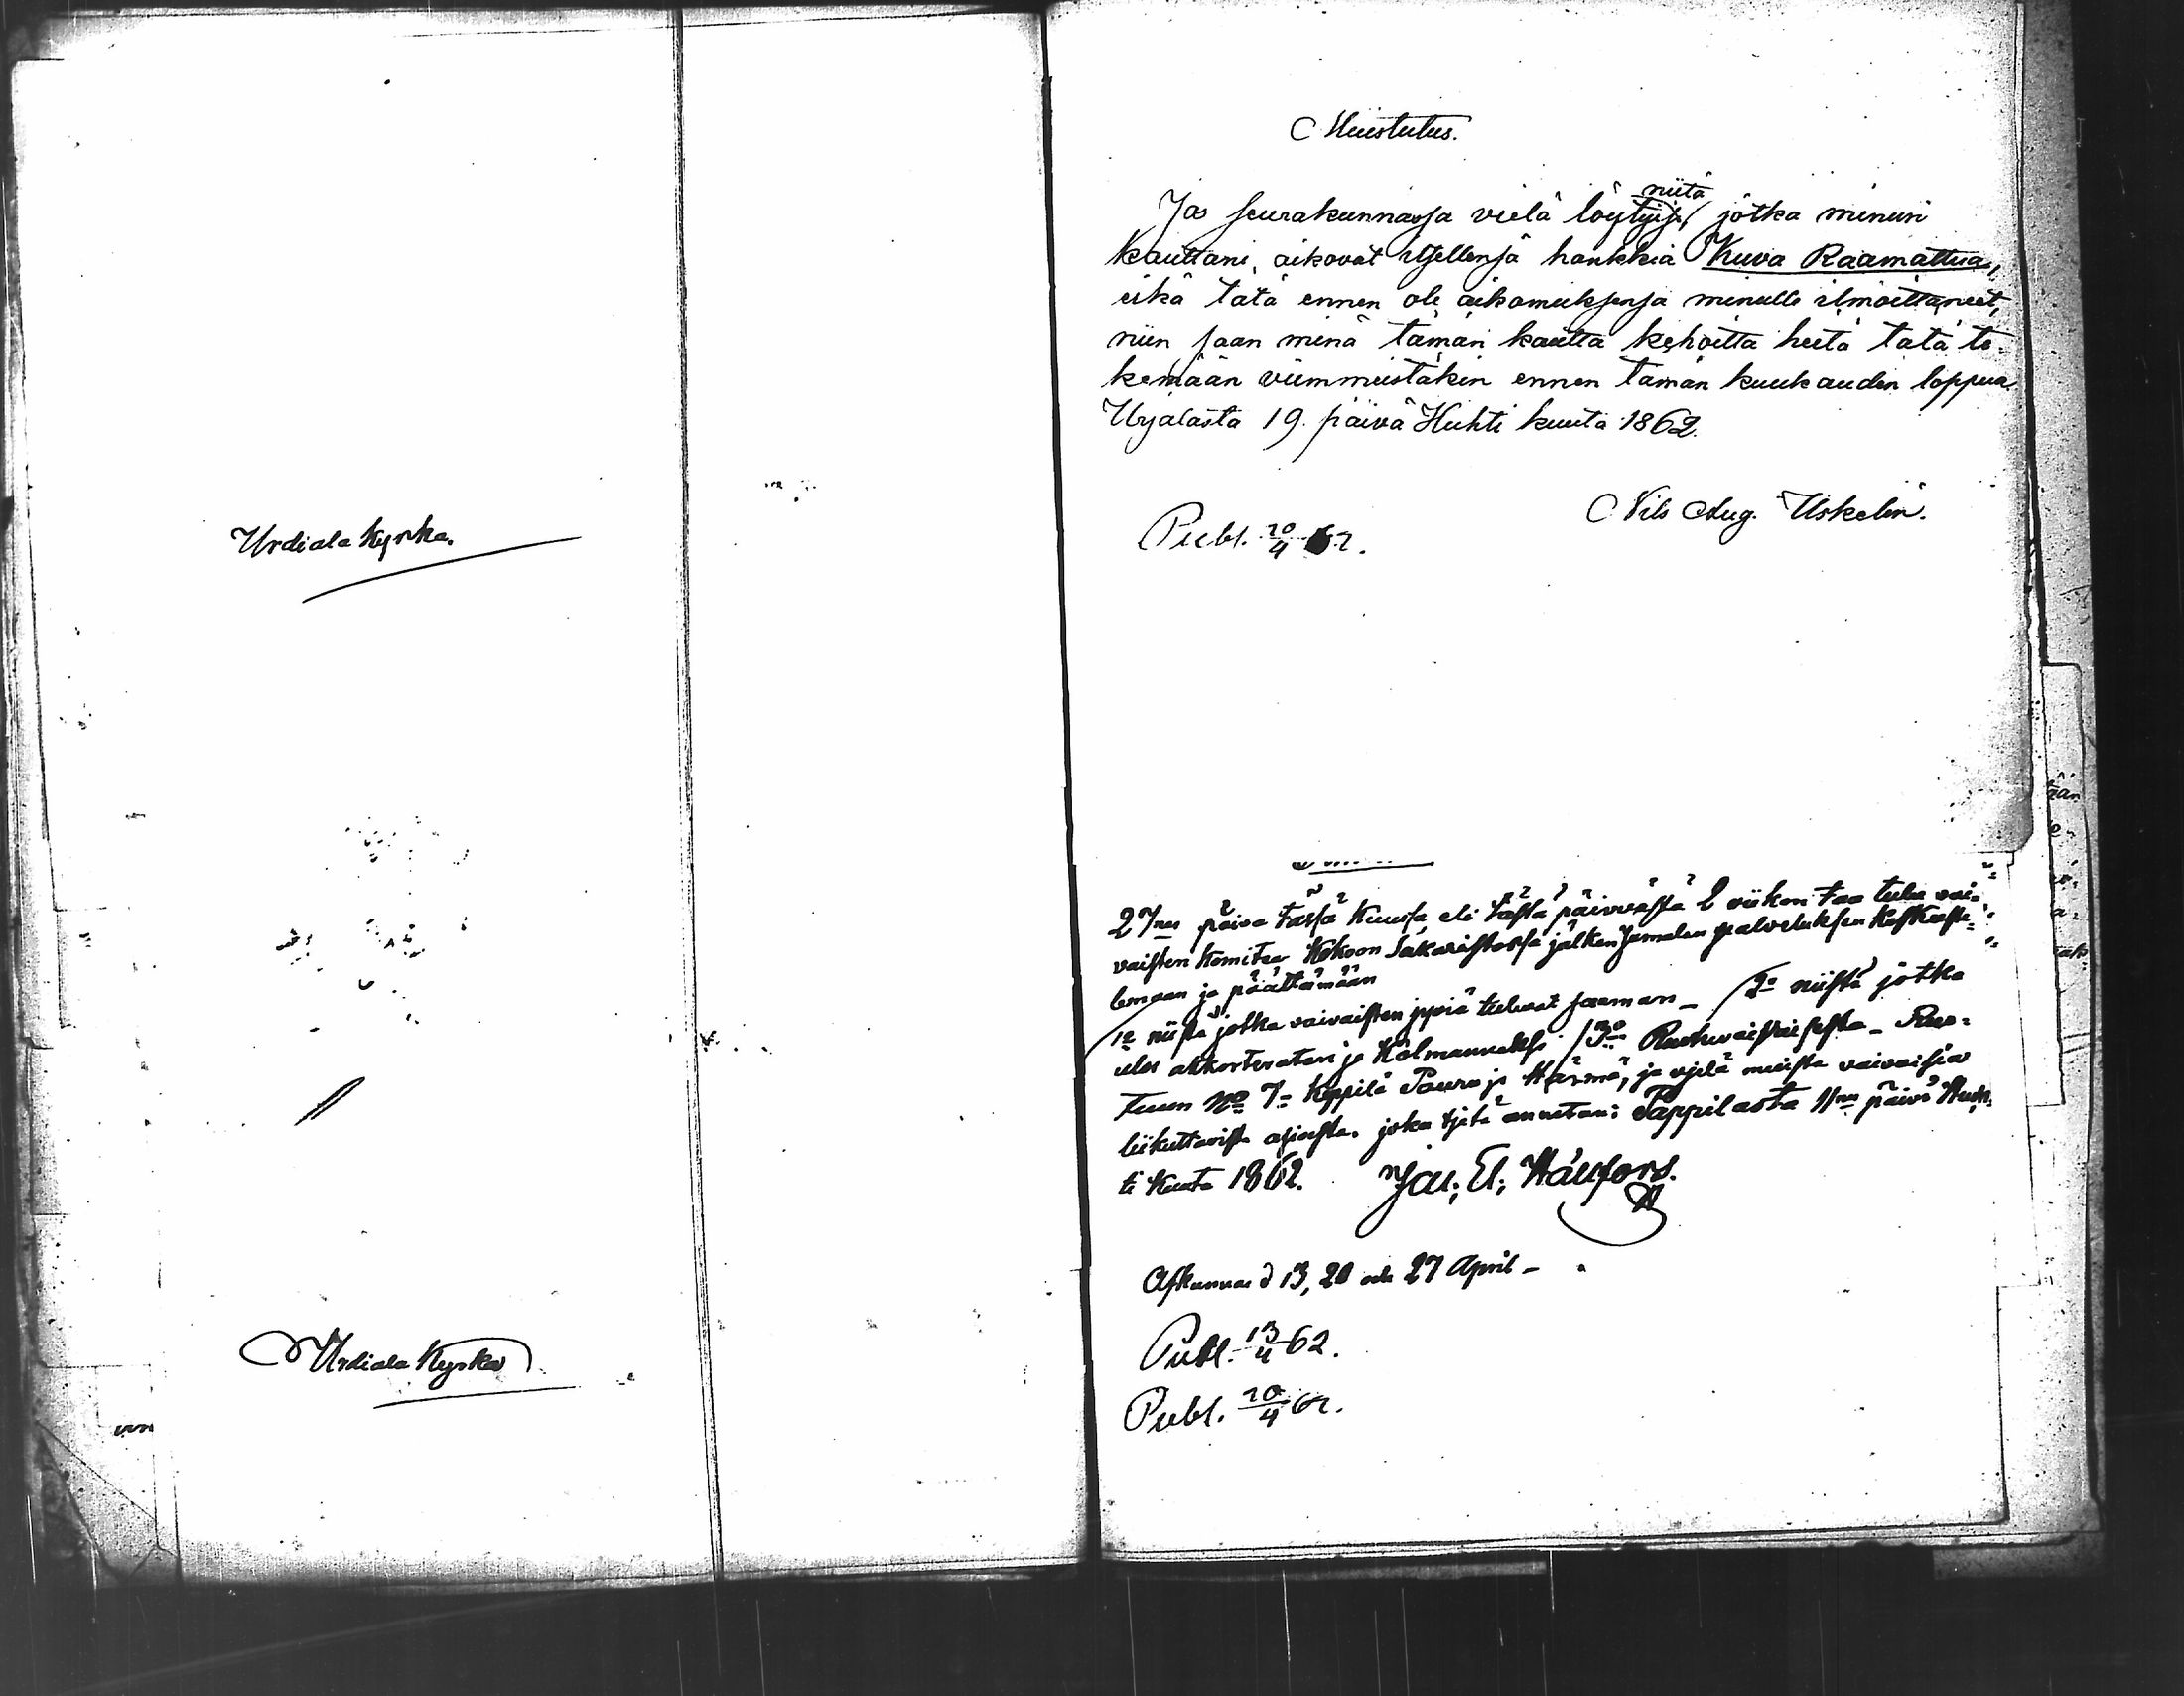 Urdiala Kyrka.
Urdiala Kyrka
Muistutus.
niitä
Jos seurakunnassa vielä löytyisi, jotka minun
kauttani, aikovat itsellensä hankkia Kuva Raamattua,
eikä tätä ennen ole aikomuksensa minulle ilmoittaneet,
niin saan minä tämän kautta kehoitta heitä tätä te-
kemään viimmeistäkin ennen tämän kuukauden loppua
Urjalasta 19. päivä Huhti kuuta 1862.
Nils Aug. Uskelin.
Publ. 20/4 62.
27nes päivä tässä Kuussa eli tästä päivvästä 2 viikon taa tulee vai-
vaisten Komitea Kokoon Sakaristossa jälken Jumalan palveluksen Keskuste-
lemaan ja päättämään
1o niistä jotka vaivaisten jyviä tulevat saaman - 2o niistä jotka
ulos akkorterataan ja Kolmanneksi 3o Ruotuvaivaisesta - Ruo-
tuun No 7= Keppilä Pouru ja Härmä, ja vielä muista vaivaisia
liikuttavista asioista. joka tietä annetan: Pappilasta 11nen päivä Huh-
ti Kuuta 1862. Jou; El; Häufors.
Afkunnas d 13, 20 och 27 April -
Publ. 13/4 62.
Publ. 20/4 62.